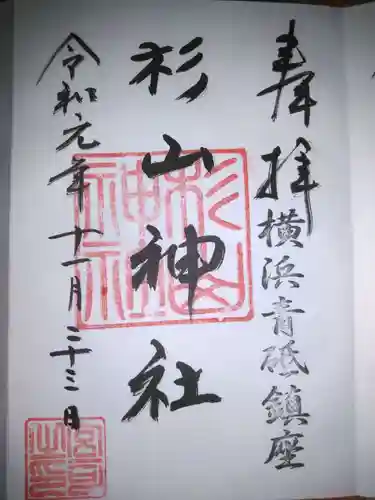 奉拝
横浜青砥鎮座
杉山神社
令和元年十一月二十三日
杉山神社
宮司之印